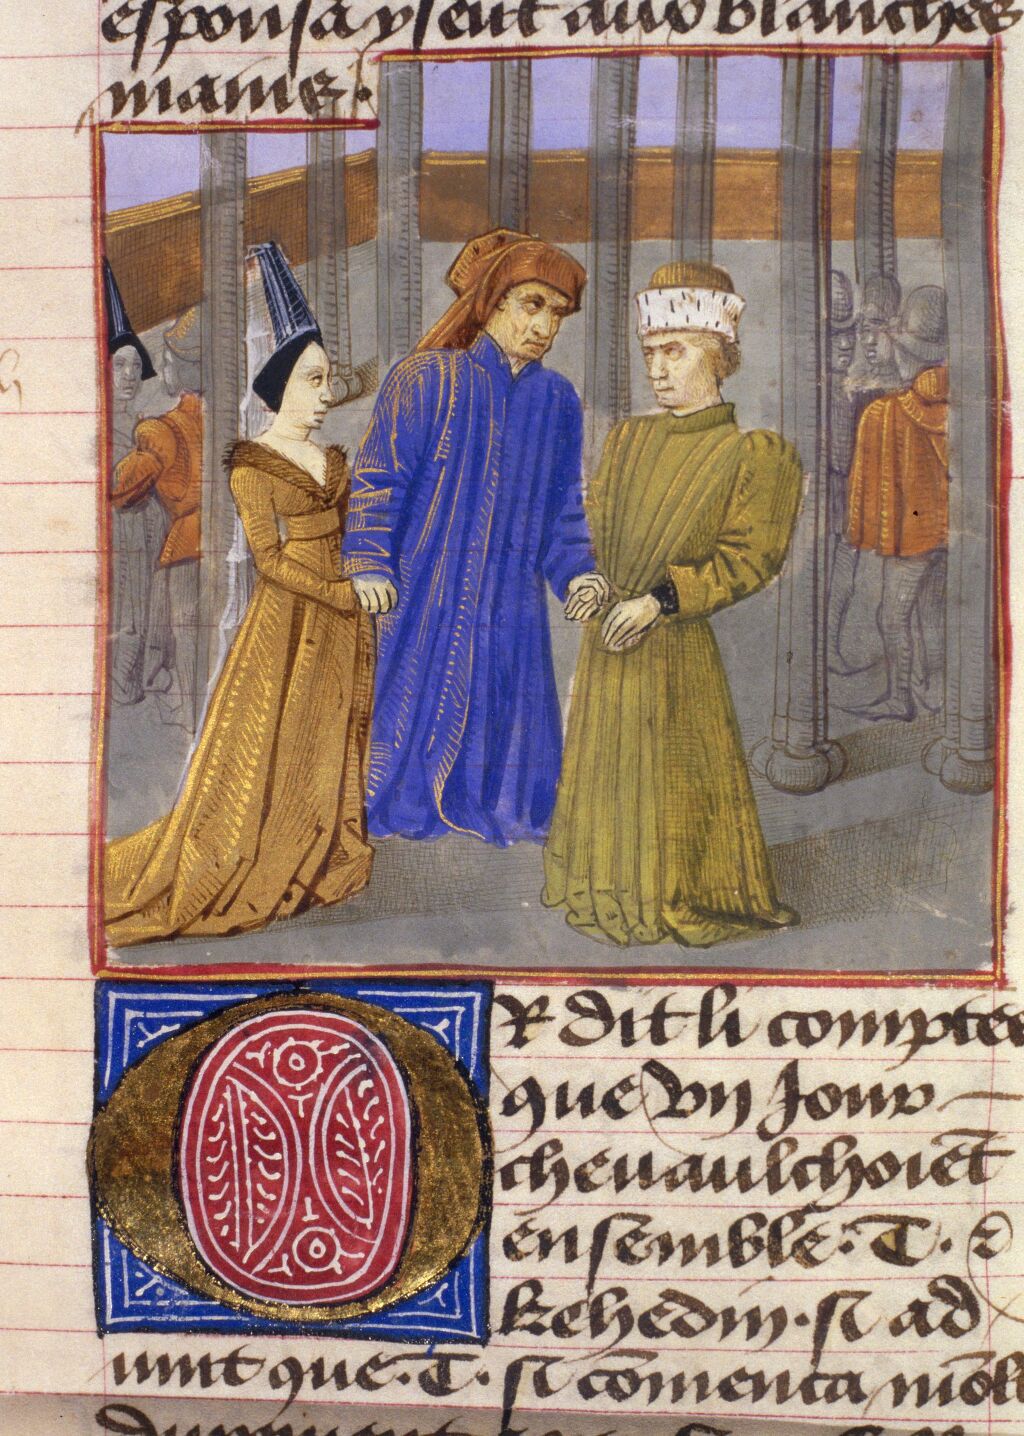 espousa yseut auo blanches
mains.
OR dit li comptes
que vij Jours
cheuaulchoiēt
ensemble. T. &
kehedin. si ad
uint que. T. si cōmenca mōlt